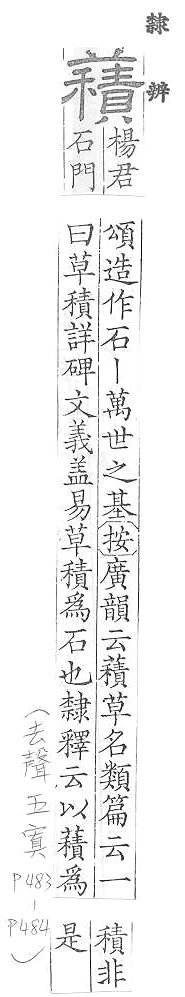 隸辨
蕡
楊君
石門
頌造作石丨萬世之基按廣韻云藬草名類篇云一
曰草積詳碑文義盖易草積爲石也隸釋云以藬爲
積非
是
(去聲五寘
P483-
P484)